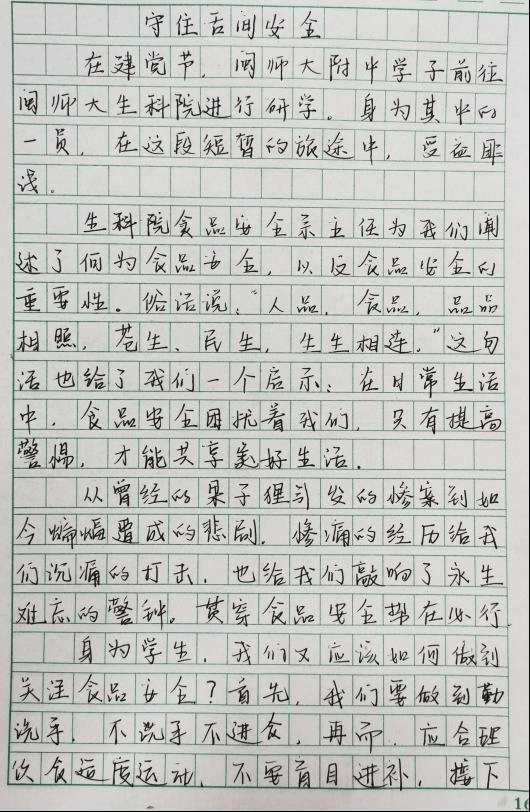 守住舌间安全
在建党节，闽师大附中学子前往
闽师大生科院进行研学。身为其中的
一员，在这段短暂的旅途中，受益匪
浅。
生科院食品安全系主任为我们阐
述了何为食品安全，以及食品安全的
重要性。俗话说，“人品，食品，品品
相照，苍生、民生，生生相连。”这句
话也给了我们一个启示：在日常生活
中，食品安全困扰着我们，只有提高
警惕，才能共享美好生活。
从曾经的果子狸引发的惨案到如
今蝙蝠酿成的悲剧，惨痛的经历给我
们沉痛的打击，也给我们敲响了永生
难忘的警钟。贯穿食品安全势在必行
身为学生，我们又应该如何做到
关注食品安全？首先，我们要做到勤
洗手，不洗手不进食，再而，应合理
饮食适度运动，不要盲目进补，接下